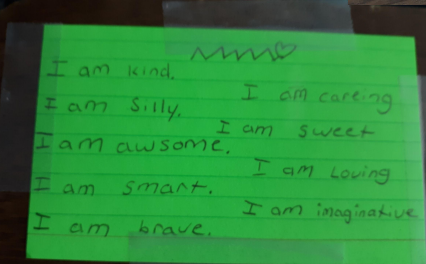 I am kind.
I am careing
I am silly.
I am sweet
I am awsome.
I am Loving
I am smart.
I am imaginative
I am brave.